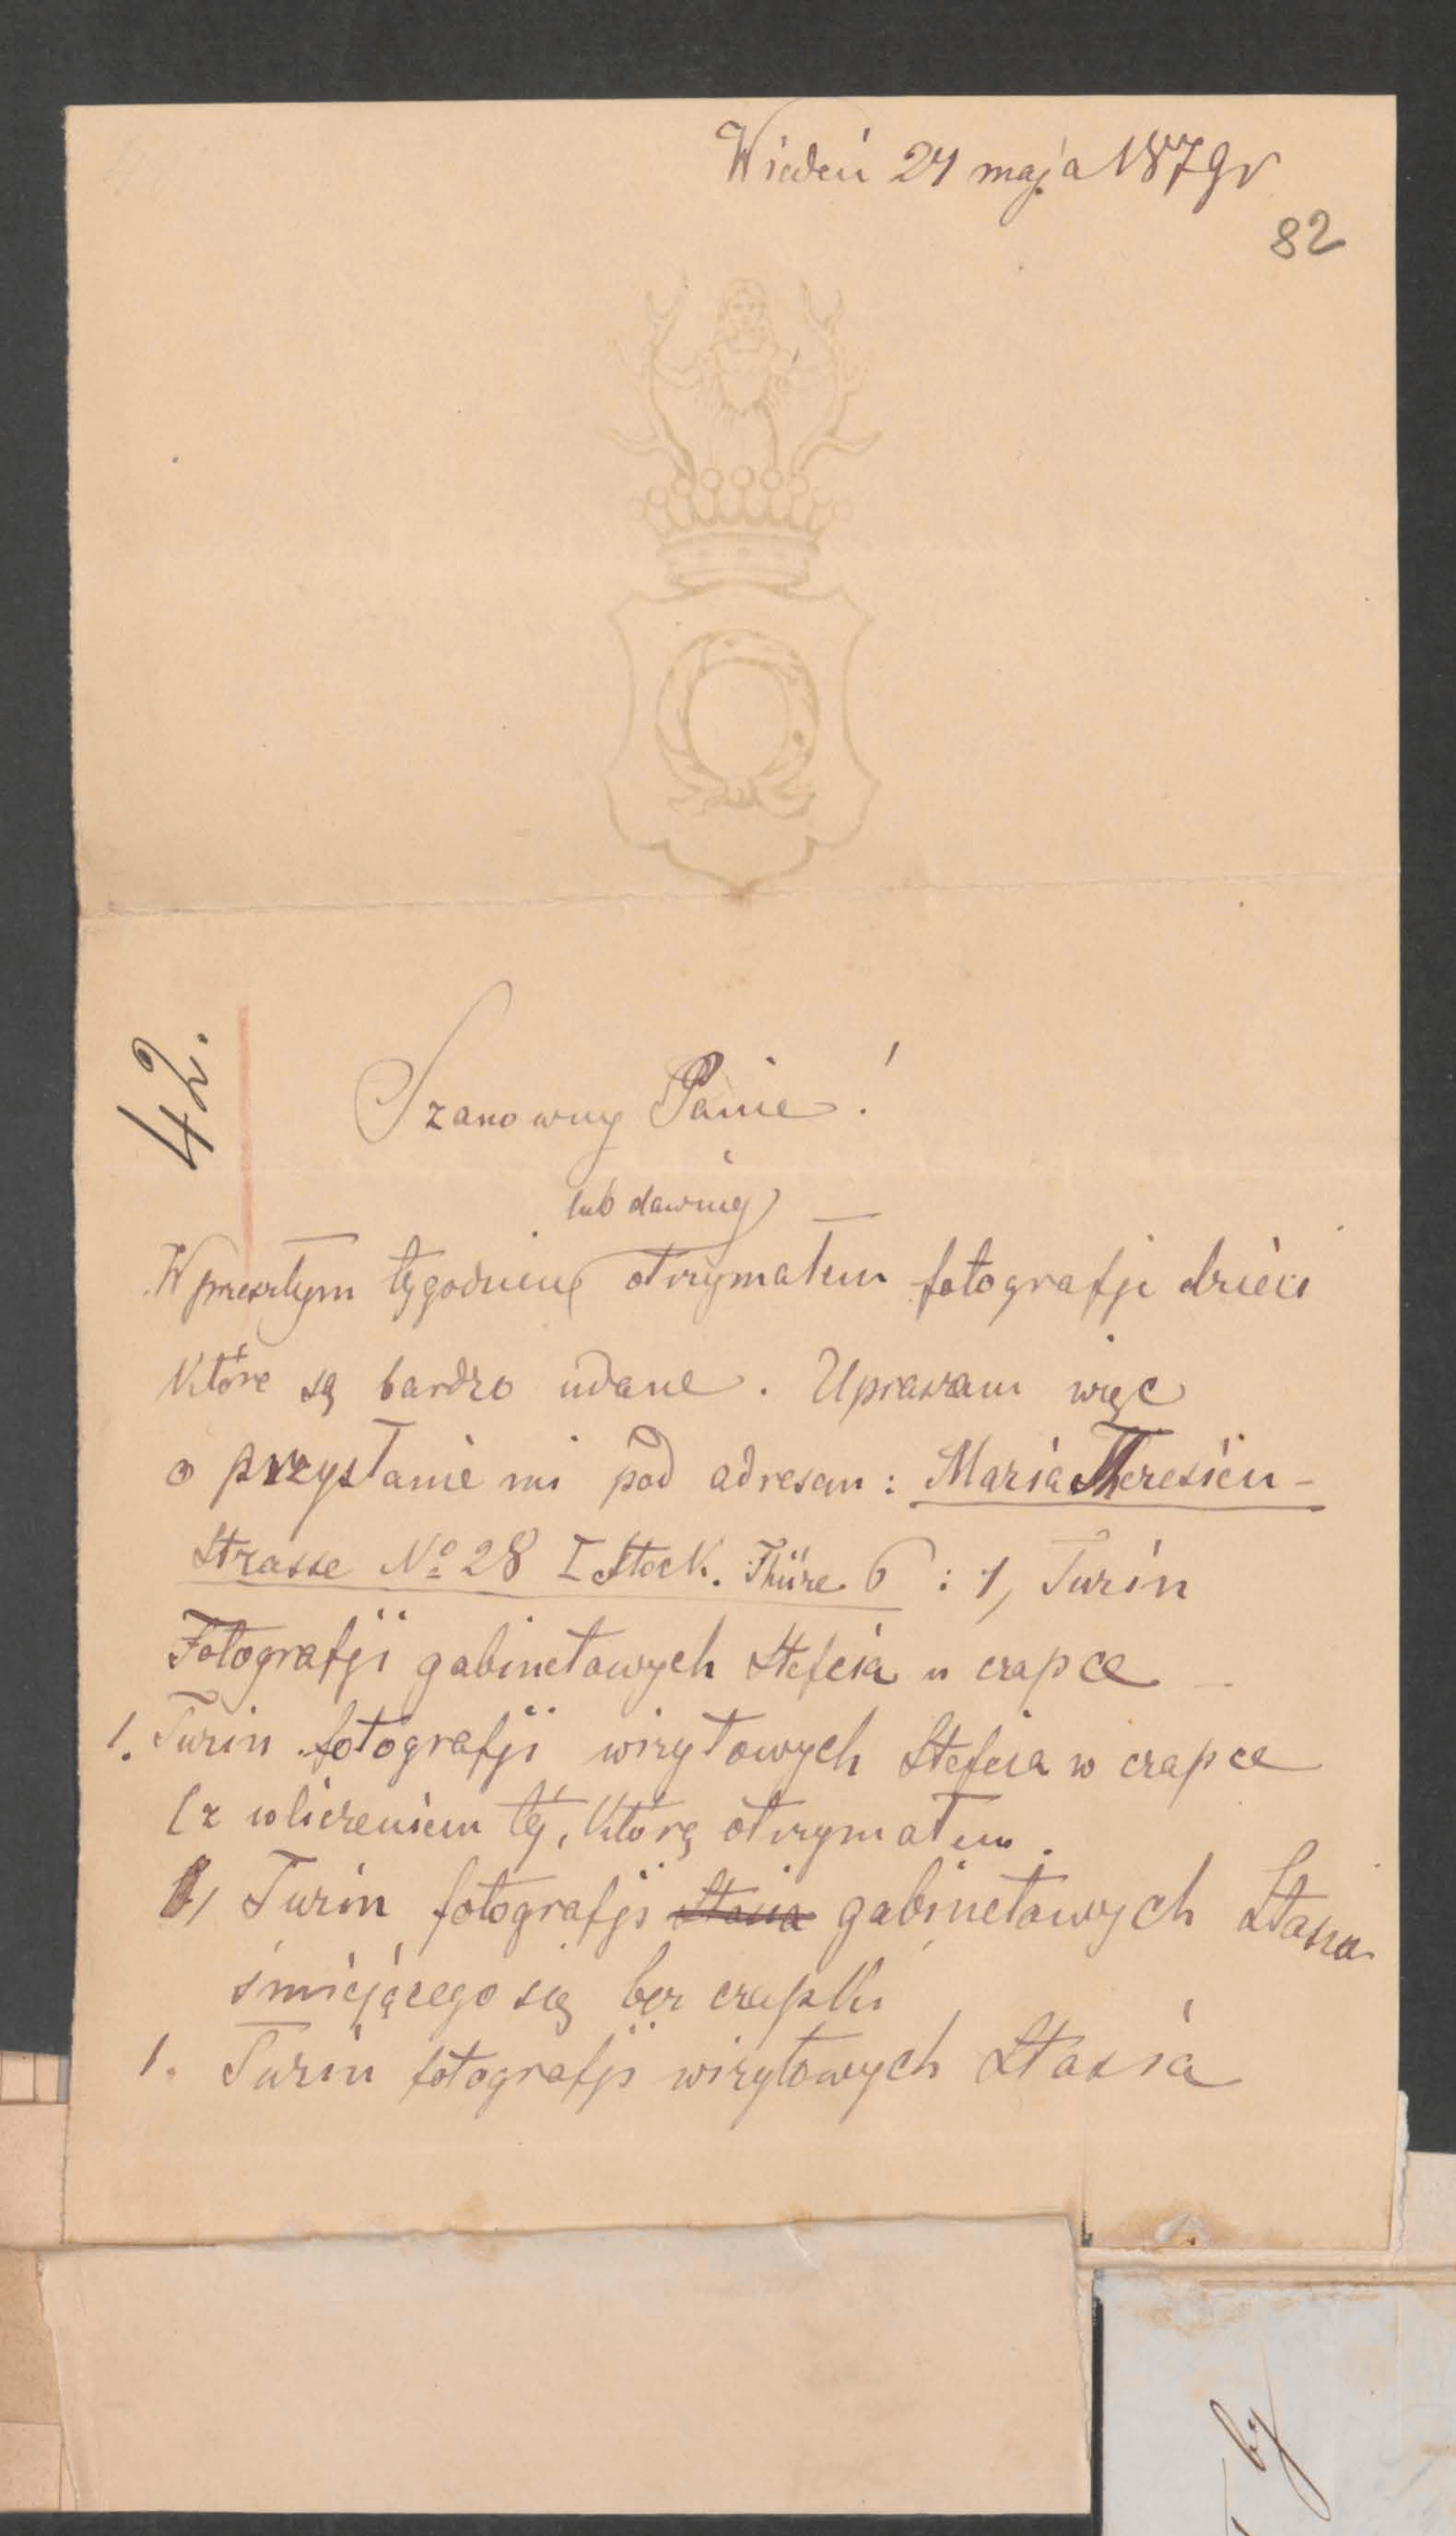 Wiedeń 24 maja 1879 r
82
42.
Szanowny Panie!
lub dawniej
W przeszłym tygodniu otrzymałem fotografje dzieci
które są bardzo udane. Upraszam więc
o przysłanie mi pod adresem: Maria Theresien-
Strasse No 28 I Stock. Thüre 6 : 1, Tuzin
Fotografji gabinetowych Stefcia w czapce
1. Tuzin fotografji wizytowych Stefcia w czapce
(z wliczeniem téj, którą otrzymałem.
1, Tuzin fotografji Stasia gabinetowych Stasia
śmiejącego się bez czapki
1. Tuzin fotografji wizytowych Stasia
by